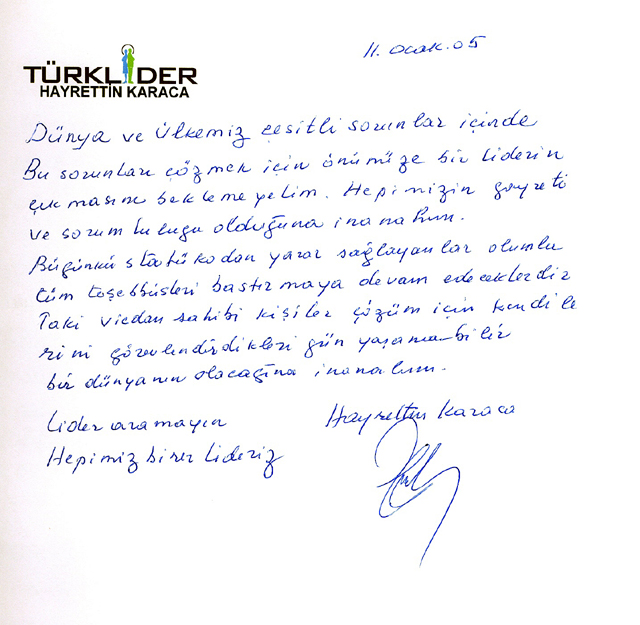 11. ocak. 05
TÜRKLİDER
HAYRETTİN KARACA
Dünya ve Ülkemiz çeşitli sorunlar içinde
Bu sorunları çözmek için önümüze bir liderin
çıkmasını beklemeyelim. Hepimizin gayreti
ve sorumluluğu olduğuna inanalım.
Bugünkü statükodan yarar sağlayanlar olumlu
tüm teşebbüsleri bastırmaya devam edeceklerdir
Taki vicdan sahibi kişiler çözüm için kendile
rini görevlendirdikleri gün yaşama bilir
bir dünyanın olacağına inanalım.
Lider aramayın
Hepimiz birer Lideriz
Hayrettin Karaca